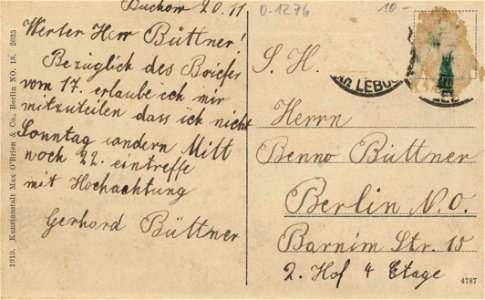 Buckow 20.11
Werter Herr Büttner!
Bezüglich des Briefes
vom 17. erlaube ich mir
mitzuteilen dass ich nicht
Sonntag sondern Mitt
woch 22. eintreffe
mit Hochachtung
Gerhard Büttner
D-1276
10-
S. H.
LEBUS
Herrn
Benno Büttner
Berlin N.O.
Barnim Str. 15
2. Hof 4 Etage
4787
1919. Kunstanstalt Max O'Brien & Co. Berlin NO. 18. 2035